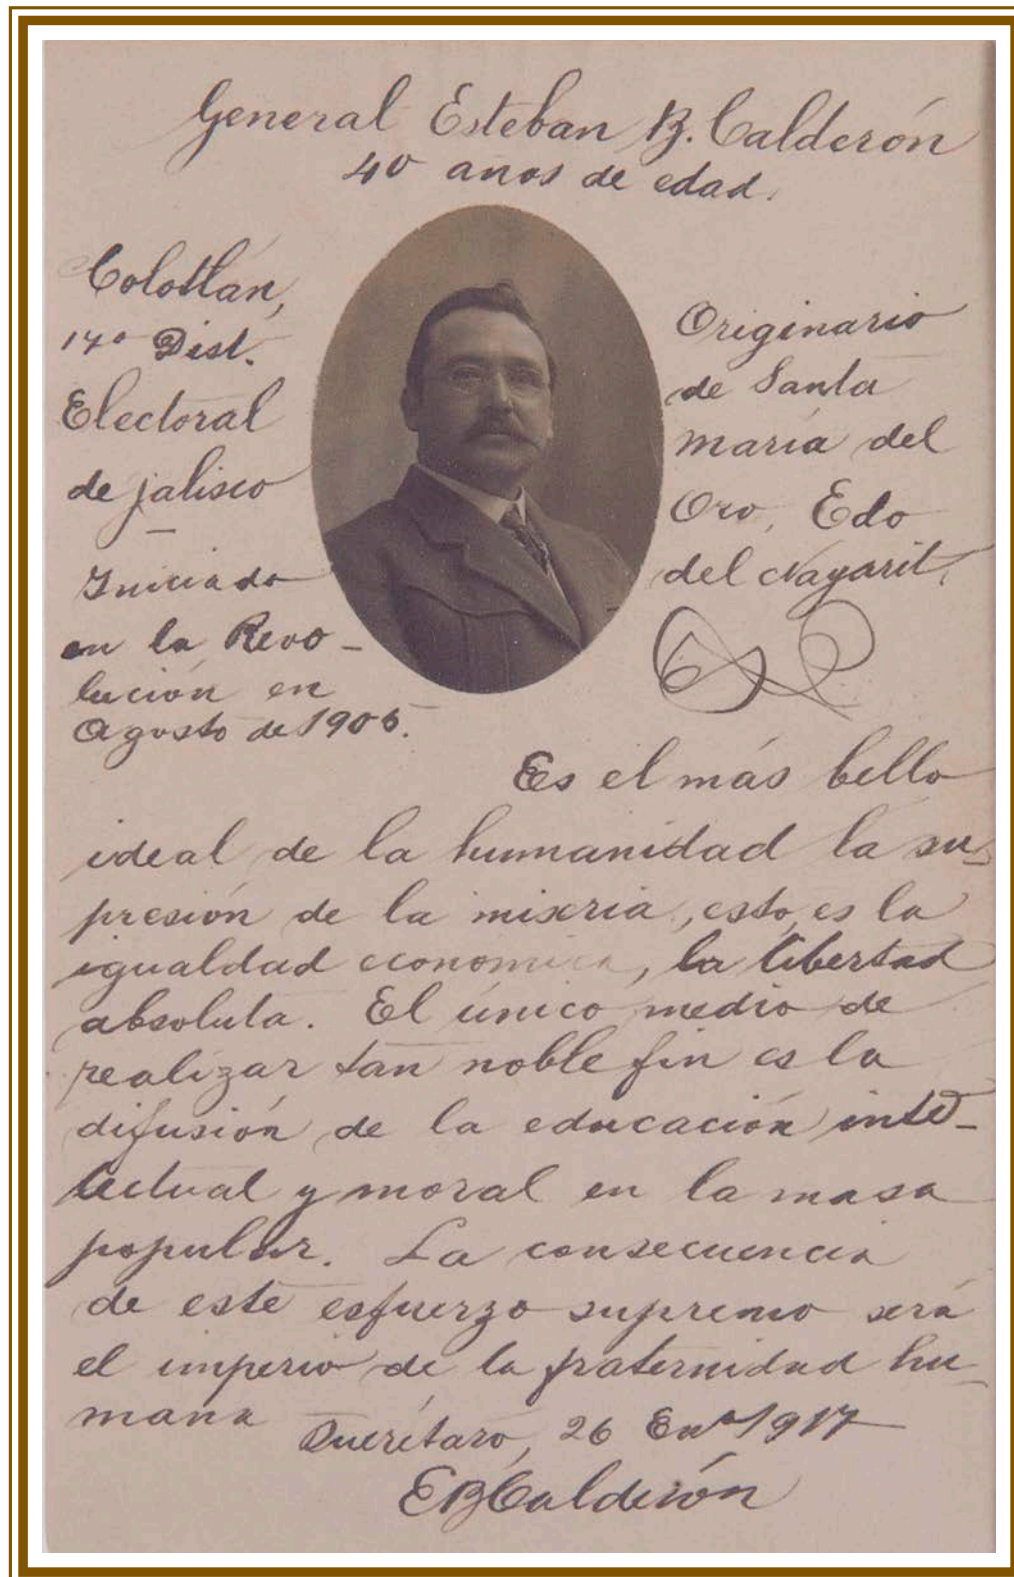 General Esteban B. Calderón
40 años de edad.
Colotlán,
17º Dist.
Electoral
de jalisco
Iniciado
en la Revo-
lución en
Agosto de 1905.
Originario
de Santa
María del
Oro, Edo
del Nayarit.
Es el más bello
ideal de la humanidad la su-
presión de la miseria, esto es la
igualdad económica, la libertad
absoluta. El único medio de
realizar tan noble fin es la
difusión de la educación inte-
lectual y moral en la masa
popular. La consecuencia
de este esfuerzo supremo será
el imperio de la fraternidad hu-
mana
Querétaro, 26 Enº 1917
EBCalderón